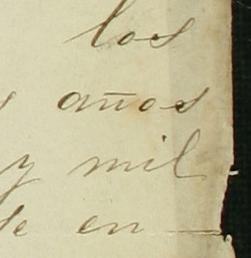 los
años
y mil
de en